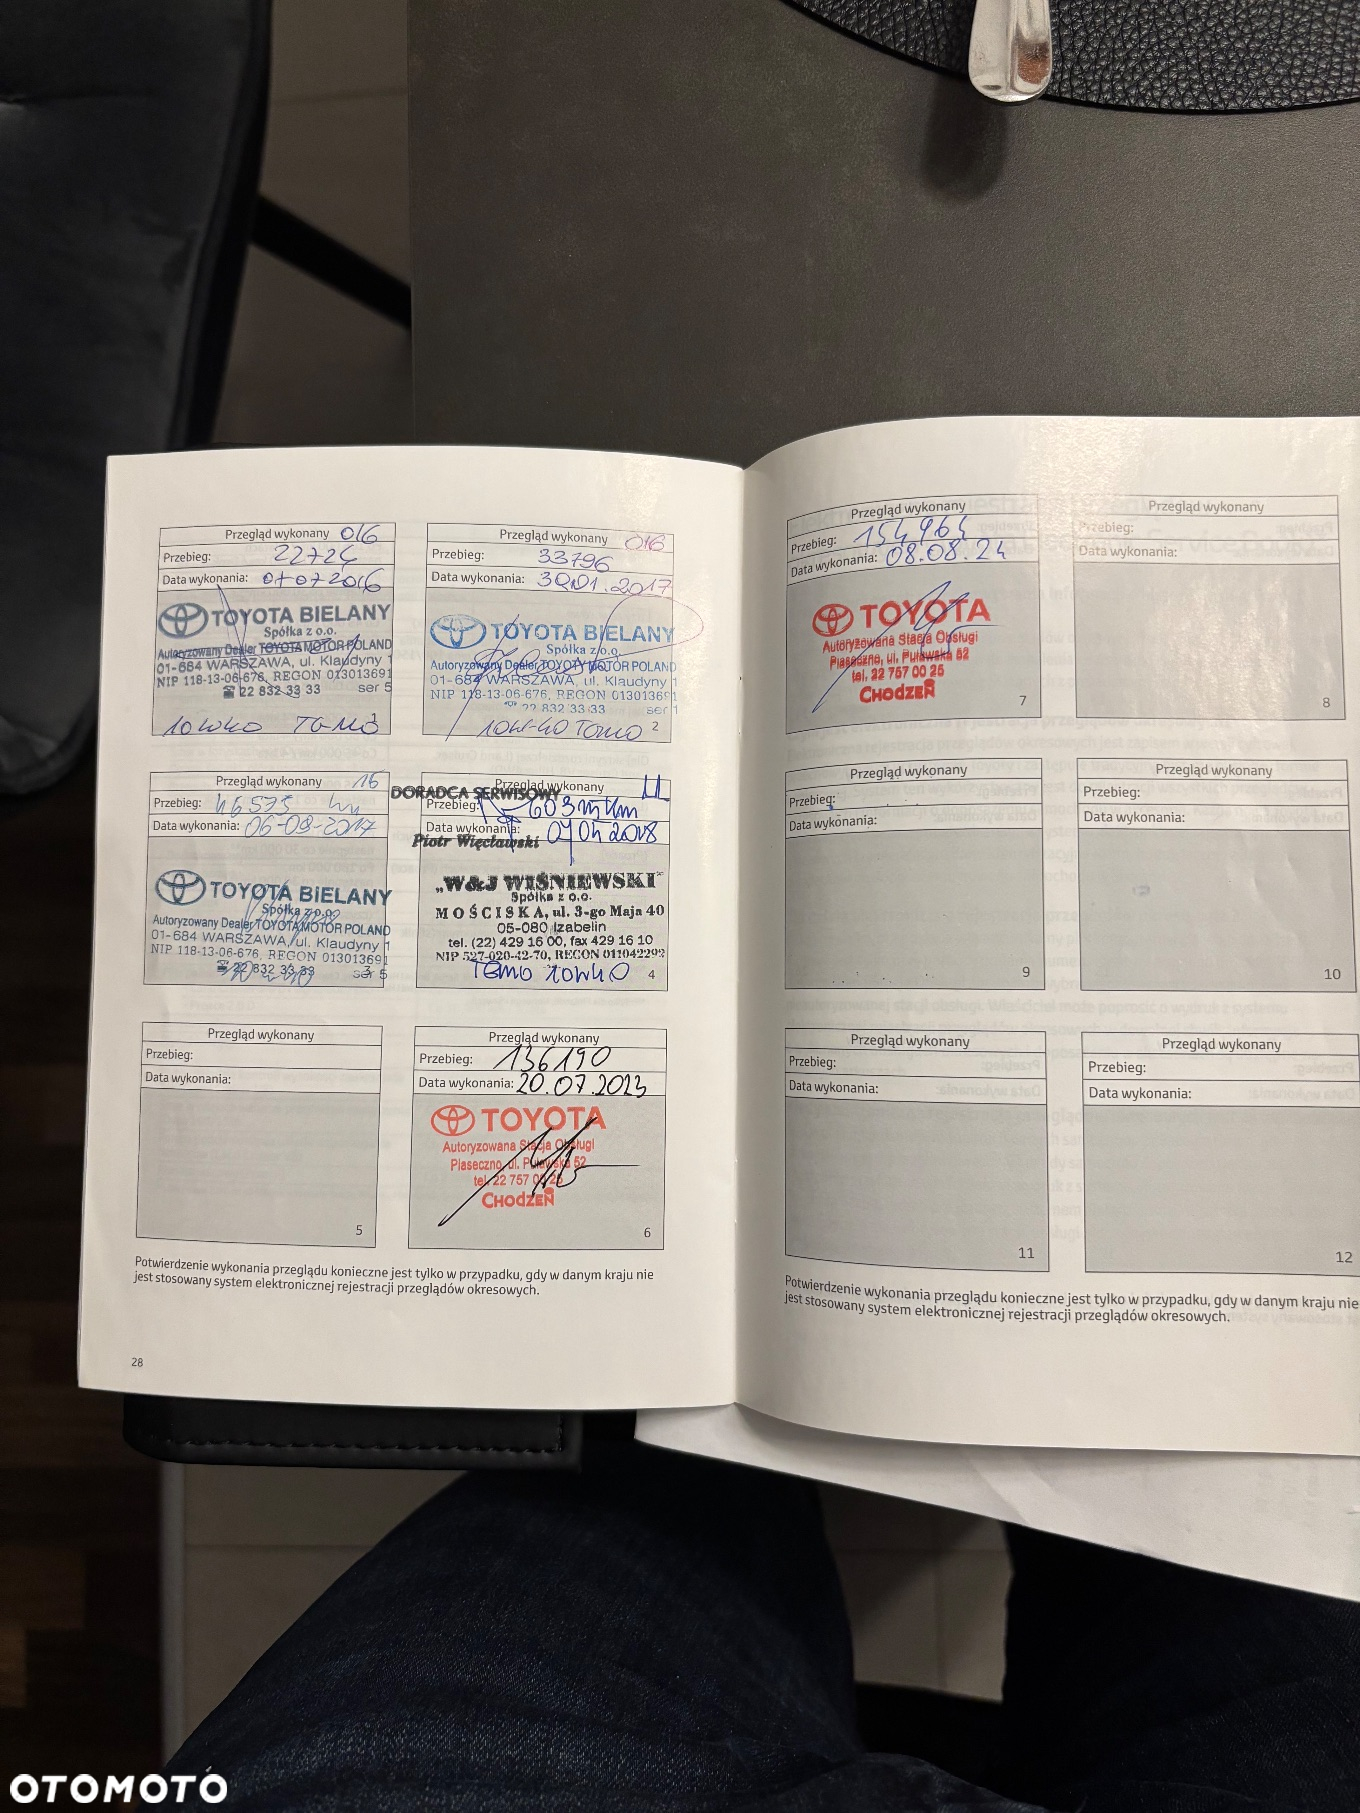 Przegląd wykonany 016
Przebieg: 22724
Data wykonania: 07072016
TOYOTA BIELANY
Spółka z o.o.
Autoryzowany Dealer TOYOTA MOTOR POLAND
01-684 WARSZAWA, ul. Klaudyny 1
NIP 118-13-06-676, REGON 013013691
☎ 22 832 33 33 ser 5
10W40
Przegląd wykonany 016
Przebieg: 33796
Data wykonania: 30.01.2017
TOYOTA BIELANY
Spółka z o.o.
Autoryzowany Dealer TOYOTA MOTOR POLAND
01-684 WARSZAWA, ul. Klaudyny 1
NIP 118-13-06-676, REGON 013013691
☎ 22 832 33 33 ser 1
10W-40 2
Przegląd wykonany 16
Przebieg: 46575
Data wykonania: 06-09-2017
TOYOTA BIELANY
Spółka z o.o.
Autoryzowany Dealer TOYOTA MOTOR POLAND
01-684 WARSZAWA, ul. Klaudyny 1
NIP 118-13-06-676, REGON 013013691
☎ 22 832 33 33 ser 5
3
Przegląd wykonany
DORADCA SERWISOWY
Przebieg:
Data wykonania: 2018
Piotr Więcławski
„W&J WIŚNIEWSKI"
Spółka z o.o.
MOŚCISKA, ul. 3-go Maja 40
05-080 Izabelin
tel. (22) 429 16 00, fax 429 16 10
NIP 527-020-42-70, REGON 011042292
10W40 4
Przegląd wykonany
Przebieg:
Data wykonania:
5
Przegląd wykonany
Przebieg: 136190
Data wykonania: 20.07.2023
TOYOTA
Autoryzowana Stacja Obsługi
Piaseczno, ul. Puławska 52
tel. 22 757 00 25
CHODZEŃ
6
Potwierdzenie wykonania przeglądu konieczne jest tylko w przypadku, gdy w danym kraju nie
jest stosowany system elektronicznej rejestracji przeglądów okresowych.
28
Przegląd wykonany
Przebieg: 154964
Data wykonania: 08.08.24
TOYOTA
Autoryzowana Stacja Obsługi
Piaseczno, ul. Puławska 52
tel. 22 757 00 25
CHODZEŃ
7
Przegląd wykonany
Przebieg:
Data wykonania:
8
Przegląd wykonany
Przebieg:
Data wykonania:
9
Przegląd wykonany
Przebieg:
Data wykonania:
10
Przegląd wykonany
Przebieg:
Data wykonania:
11
Przegląd wykonany
Przebieg:
Data wykonania:
12
Potwierdzenie wykonania przeglądu konieczne jest tylko w przypadku, gdy w danym kraju nie
jest stosowany system elektronicznej rejestracji przeglądów okresowych.
OTOMOTO